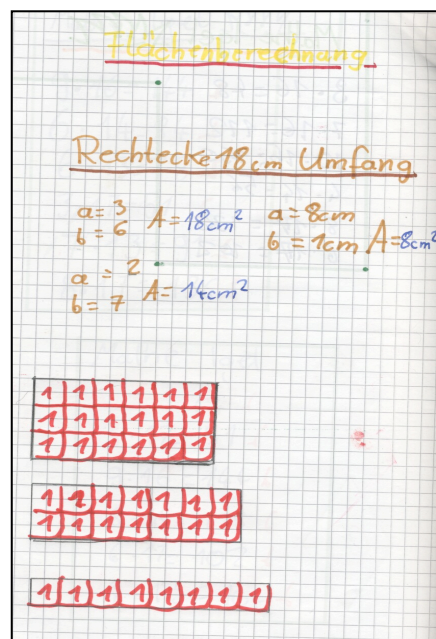 Flächenberechnung
Rechtecke 18cm Umfang
a= 3
b= 6
A= 18cm²
a= 8cm
b= 1cm
A= 8cm²
a= 2
b= 7
A= 14cm²
1 1 1 1 1 1
1 1 1 1 1 1
1 1 1 1 1 1
1 1 1 1 1 1 1
1 1 1 1 1 1 1
1 1 1 1 1 1 1 1